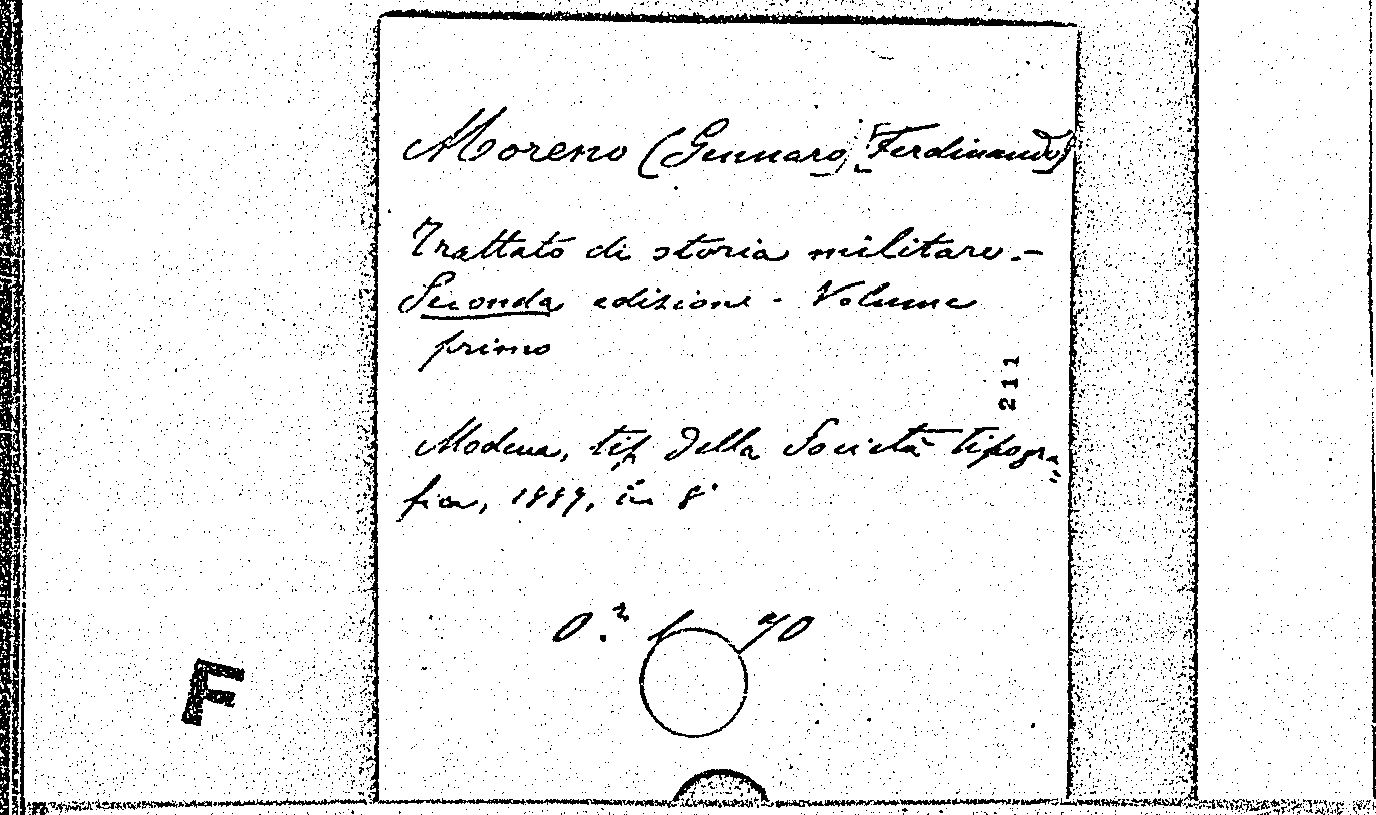 Moreno (Gennaro, Ferdinando)
Trattato di storia militare. -
Seconda edizione - Volume
primo
211
Modena, tip della Società tipogra„
fica, 1889, in 8°
70
F